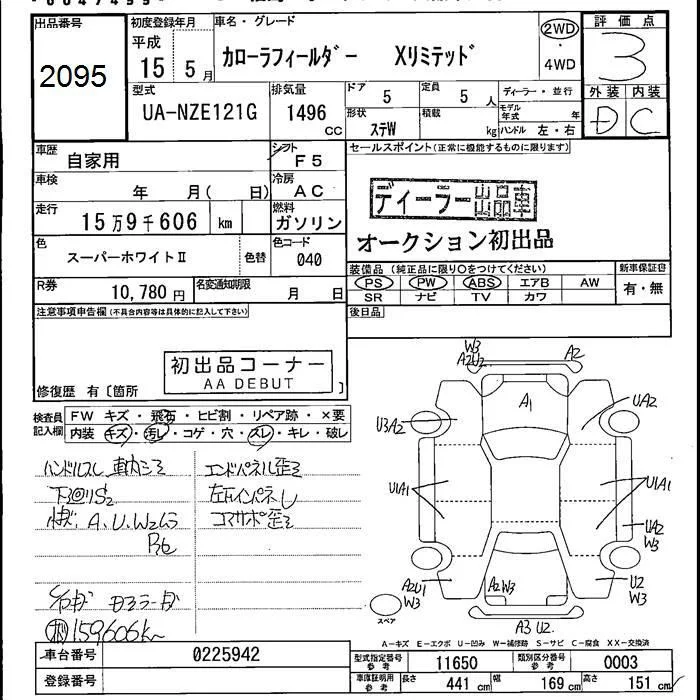 出品番号
2095
初度登録年月
平成
15 5月
車名・グレード
カローラフィールダー Xリミテッド
2WD
・
4WD
評価点
3
外装 内装
D C
型式
UA-NZE121G
排気量
1496
CC
ドア
5
定員
5 人
形状
ステW
積載
kg
ディーラー・並行
モデル年式 年
ハンドル 左・右
車歴
自家用
シフト
F5
車検
年 月( 日)
冷房
AC
走行
15万9千606 km
燃料
ガソリン
色
スーパーホワイトⅡ
色替
色コード
040
R券
10,780 円
名変通知期限
月 日
セールスポイント(正常に機能するものに限ります)
ディーラー出品車
オークション初出品
装備品(純正品に限り○をつけてください)
PS PW ABS エアB AW
SR ナビ TV カワ
新車保証書
有・無
後日品
注意事項申告欄(不具合内容等は具体的に記入して下さい)
初出品コーナー
AA DEBUT
修復歴 有〔箇所 〕
検査員記入欄
FW キズ・飛石・ヒビ割・リペア跡・×要
内装 キズ・汚レ・コゲ・穴・スレ・キレ・破レ
A.U.W2
159606K
エンドパネル歪ミ
コアサポ歪ミ
W3
A2U2
A2
A1
U3A2
UA2
U1A1
U1A1
UA2
W3
A2U1
W3
A2W3
U2
W3
スペア
A3 U2.
A-キズ E-エクボ U-凹み W-補修跡 S-サビ C-腐食 XX-交換済
車台番号
0225942
登録番号
型式指定番号
参考
11650
類別区分番号
参考
0003
車庫証明用
参考
長さ 441 cm 幅 169 cm 高さ 151 cm